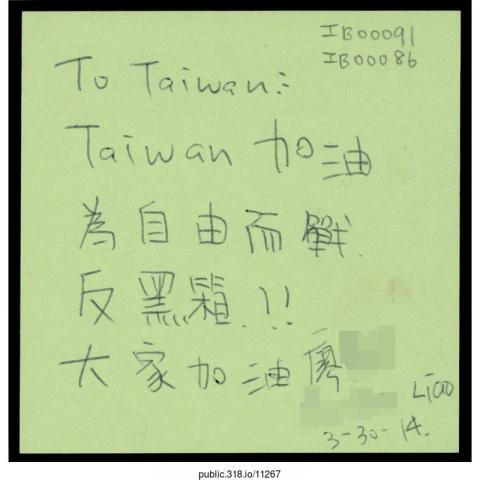 IB00091
IB00086
To Taiwan:
Taiwan 加油
為自由而戰
反黑箱!!
大家加油 廖
Liao
3-30-14.
public.318.io/11267